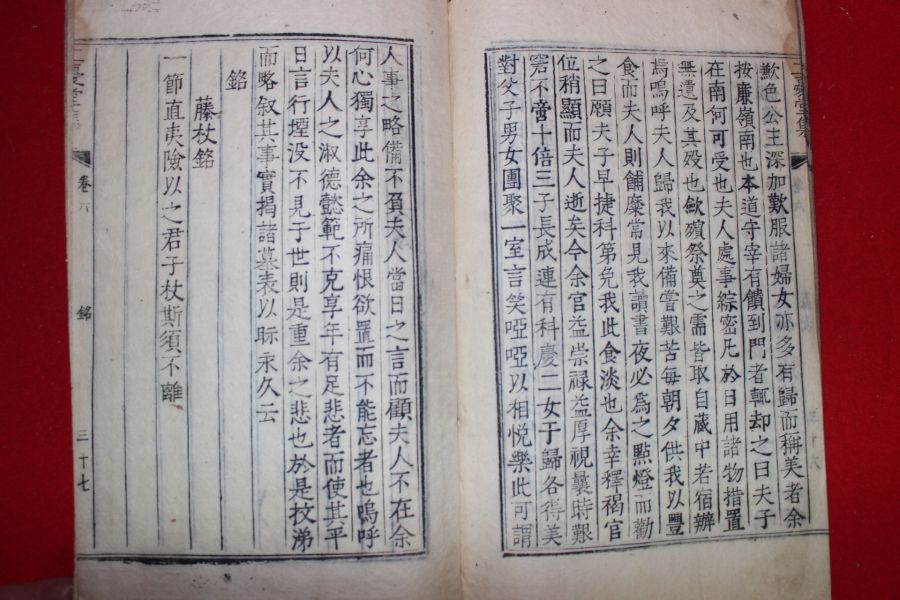 歉色公主深加歎服諸婦女亦多有歸而稱美者余
按廉嶺南也本道守宰有饋到門者輒却之曰夫子
在南何可受也夫人處事綜密凡於日用諸物措置
無遺及其歿也斂殯祭奠之需皆取自藏中若宿辦
焉嗚呼夫人歸我以來備嘗艱苦每朝夕供我以豐
食而夫人則餔糜常見我讀書夜必爲之點燈而勸
之曰願夫子早捷科第免我此食淡也余幸釋褐官
位稍顯而夫人逝矣今余官益崇祿益厚視曩時艱
窘不啻十倍三子長成連有科慶二女于歸各得美
對父子男女團聚一室言笑啞啞以相悅樂此可謂
人事之略備不負夫人當日之言而顧夫人不在余
何心獨享此余之所痛恨欲置而不能忘者也嗚呼
以夫人之淑德懿範不克享年有足悲者而使其平
日言行堙沒不見于世則是重余之悲也於是抆涕
而略叙其事實揭諸墓表以眎永久云
銘
藤杖銘
一節直夷險以之君子杖斯須不離
卷六
銘
三十七